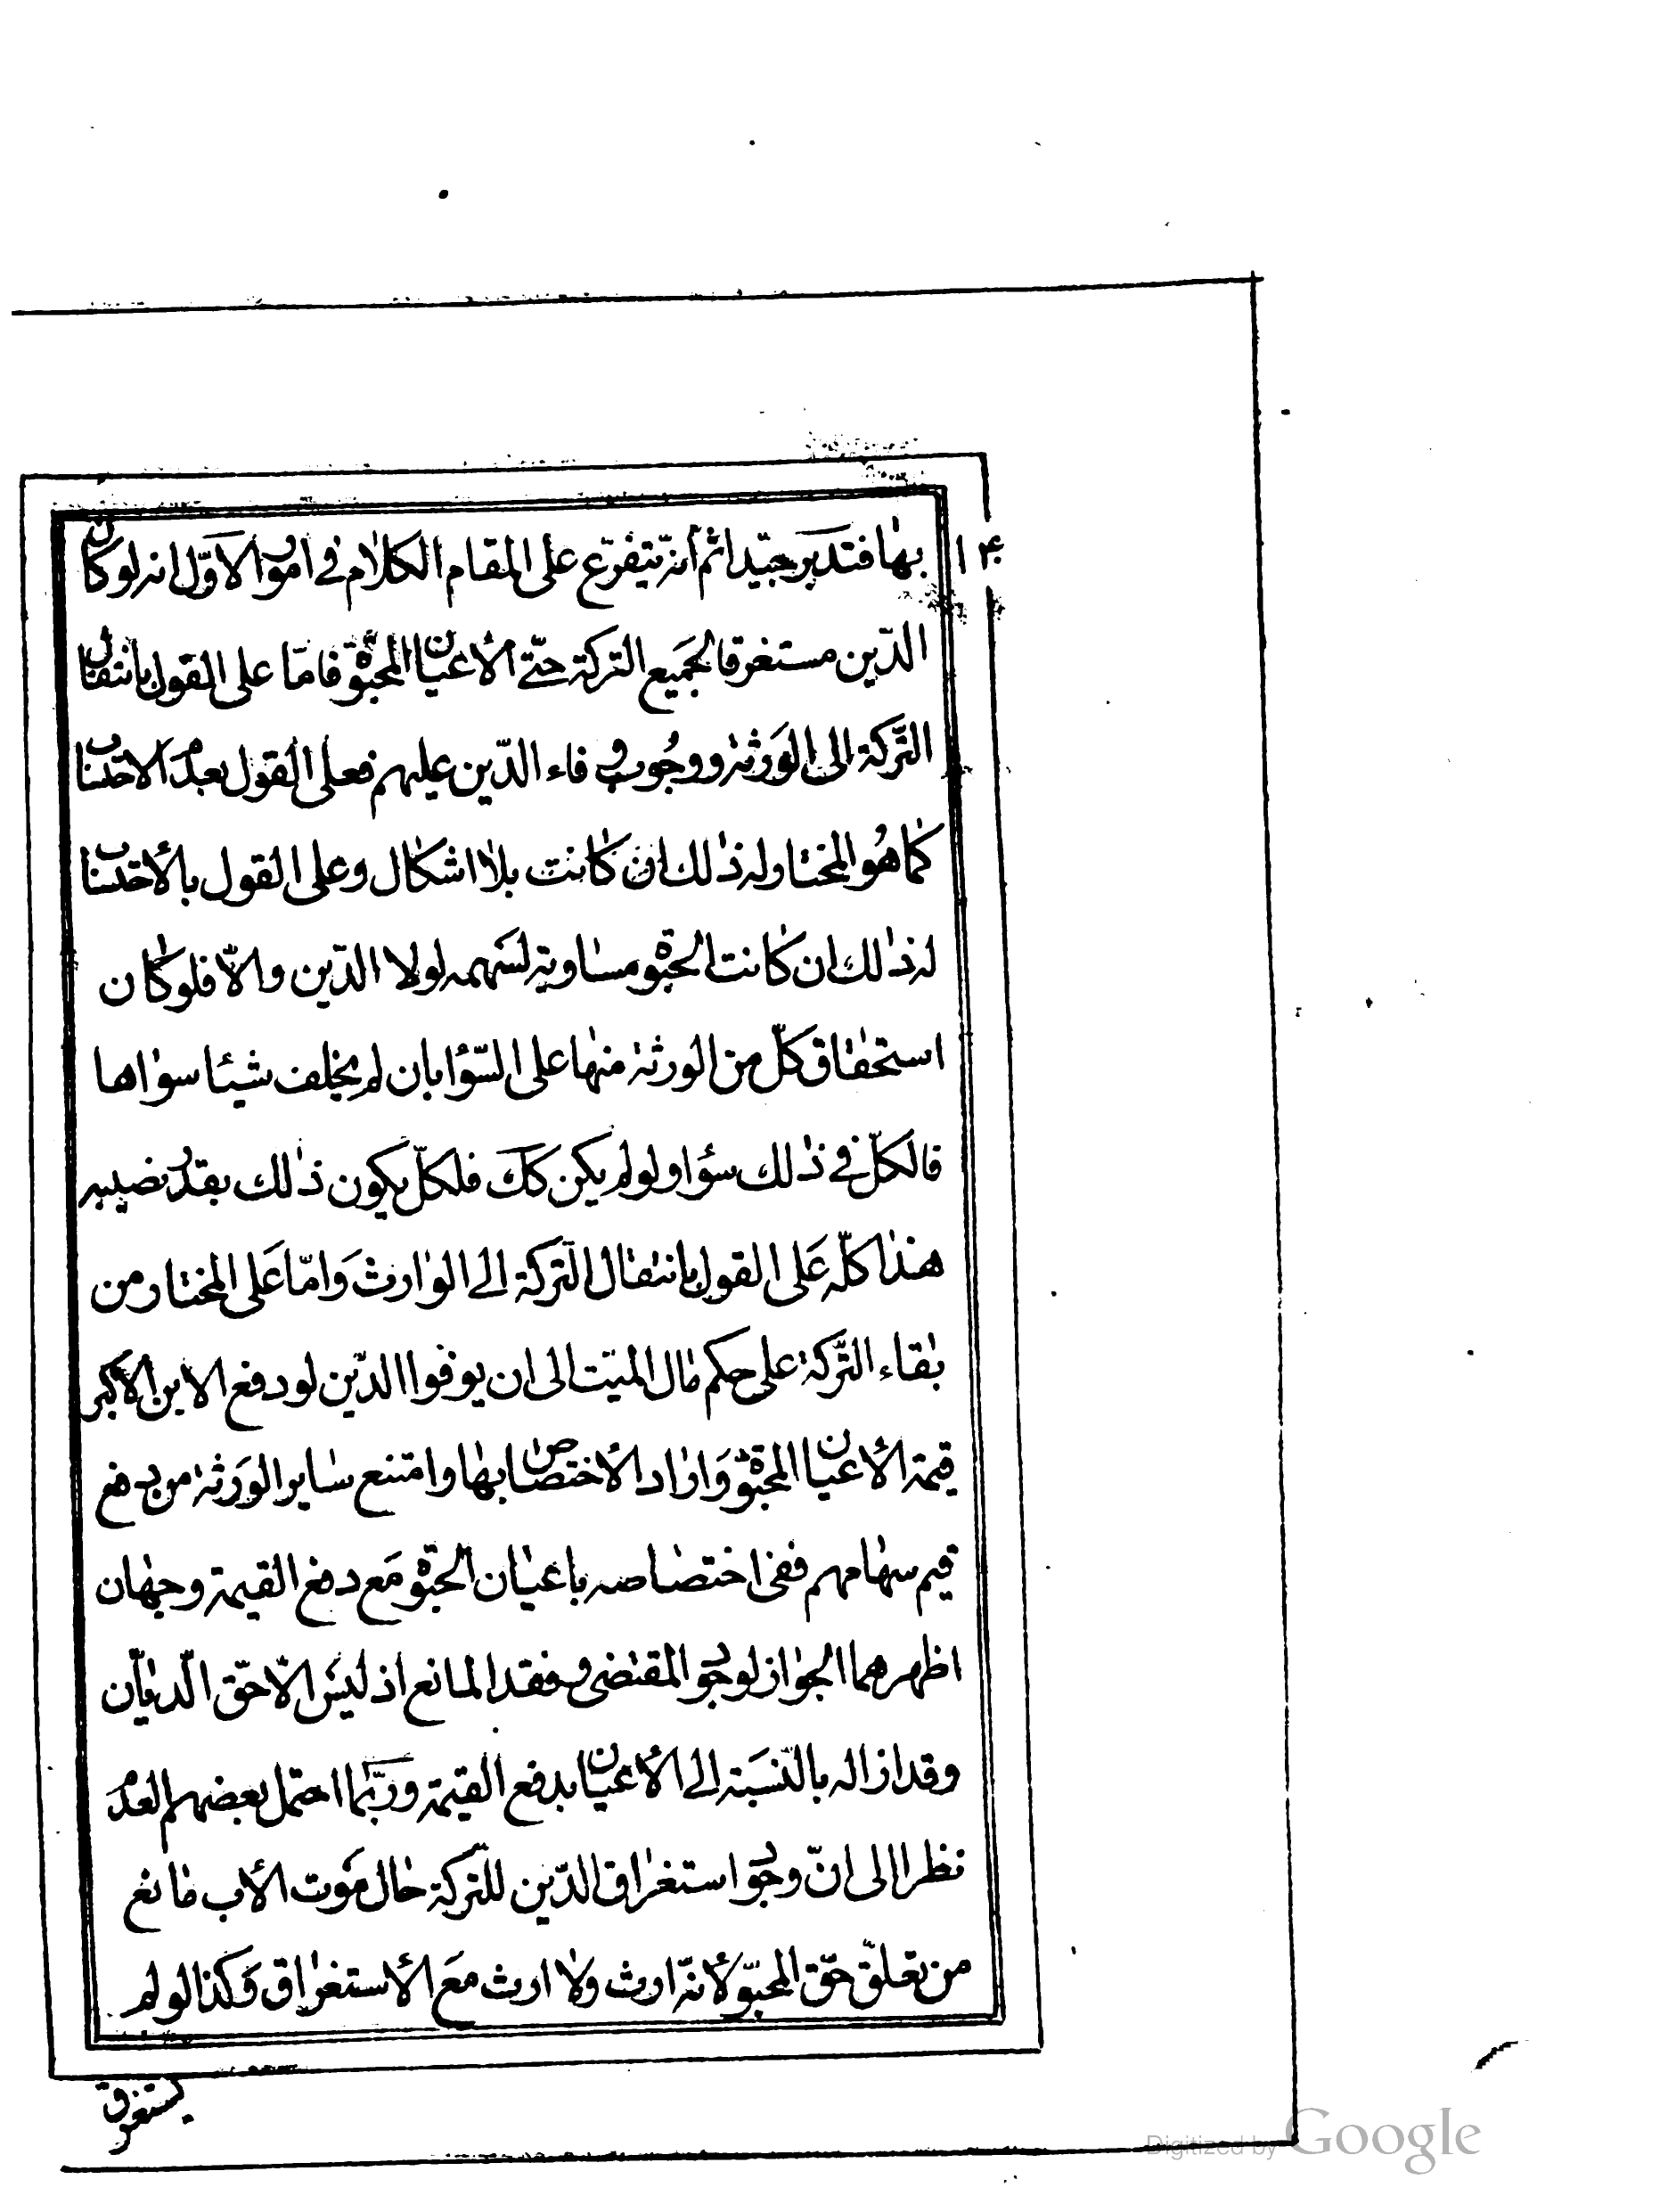 ۱۴
بهٰا فتدبّر جيّدا ثم أنّه يتفرّع على المقام الكلٰام فى امور الأوّل انه لو كان
الدّين مستغرقا لجميع التركة حتّى الأعيان المحبّوة فامّا على القول بانتقال
التّركة الى الورثة ووجوب وفاء الدّين عليهم فعلى القول بعدم الاحتساب
كما هو المختار له ذٰلك ان كانت بلٰا اشكال وعلى القول بالأحتساب
له ذٰلك ان كانت الحبوة مسٰاوية لسهمه لولا الدّين والّا فلو كان
استحقٰاق كلّ من الورثة منهٰا على السّؤا بان لم يخلف شيئا سوٰاها
فالكلّ فى ذٰلك سؤا ولو لم يكن كك فلكلّ يكون ذٰلك بقدر نصيبه
هذٰا كلّه على القول بانتقٰال التّركة الى الوٰارث وامّا على المختار من
بقٰاء التّركة على حكم مٰال الميّت الى ان يوفوا الدّين لو دفع الابن الأكبر
قيمة الأعيان المحبّوة وارٰاد الأختصٰاص بهٰا وامتنع سٰاير الورثة من دفع
قيم سهٰامهم ففى اختصٰاصه باعيٰان الحبوة مع دفع القيمة وجهٰان
اظهرهما الجوٰاز لوجود المقتضى وفقد المانع اذ ليس الّا حقّ الّديّان
وقد ازاله بالنّسبة الى الأعيان بدفع القيمة وربّما احتمل بعضهم العدم
نظرا الى انّ وجود استغرٰاق الدّين للتّركة حٰال موت الأب مٰانع
من تعلّق حقّ المحبّو لأنّه ارث ولٰا ارث مع الأستغرٰاق وكذا لو لم
يستغرق
Digitized by Google